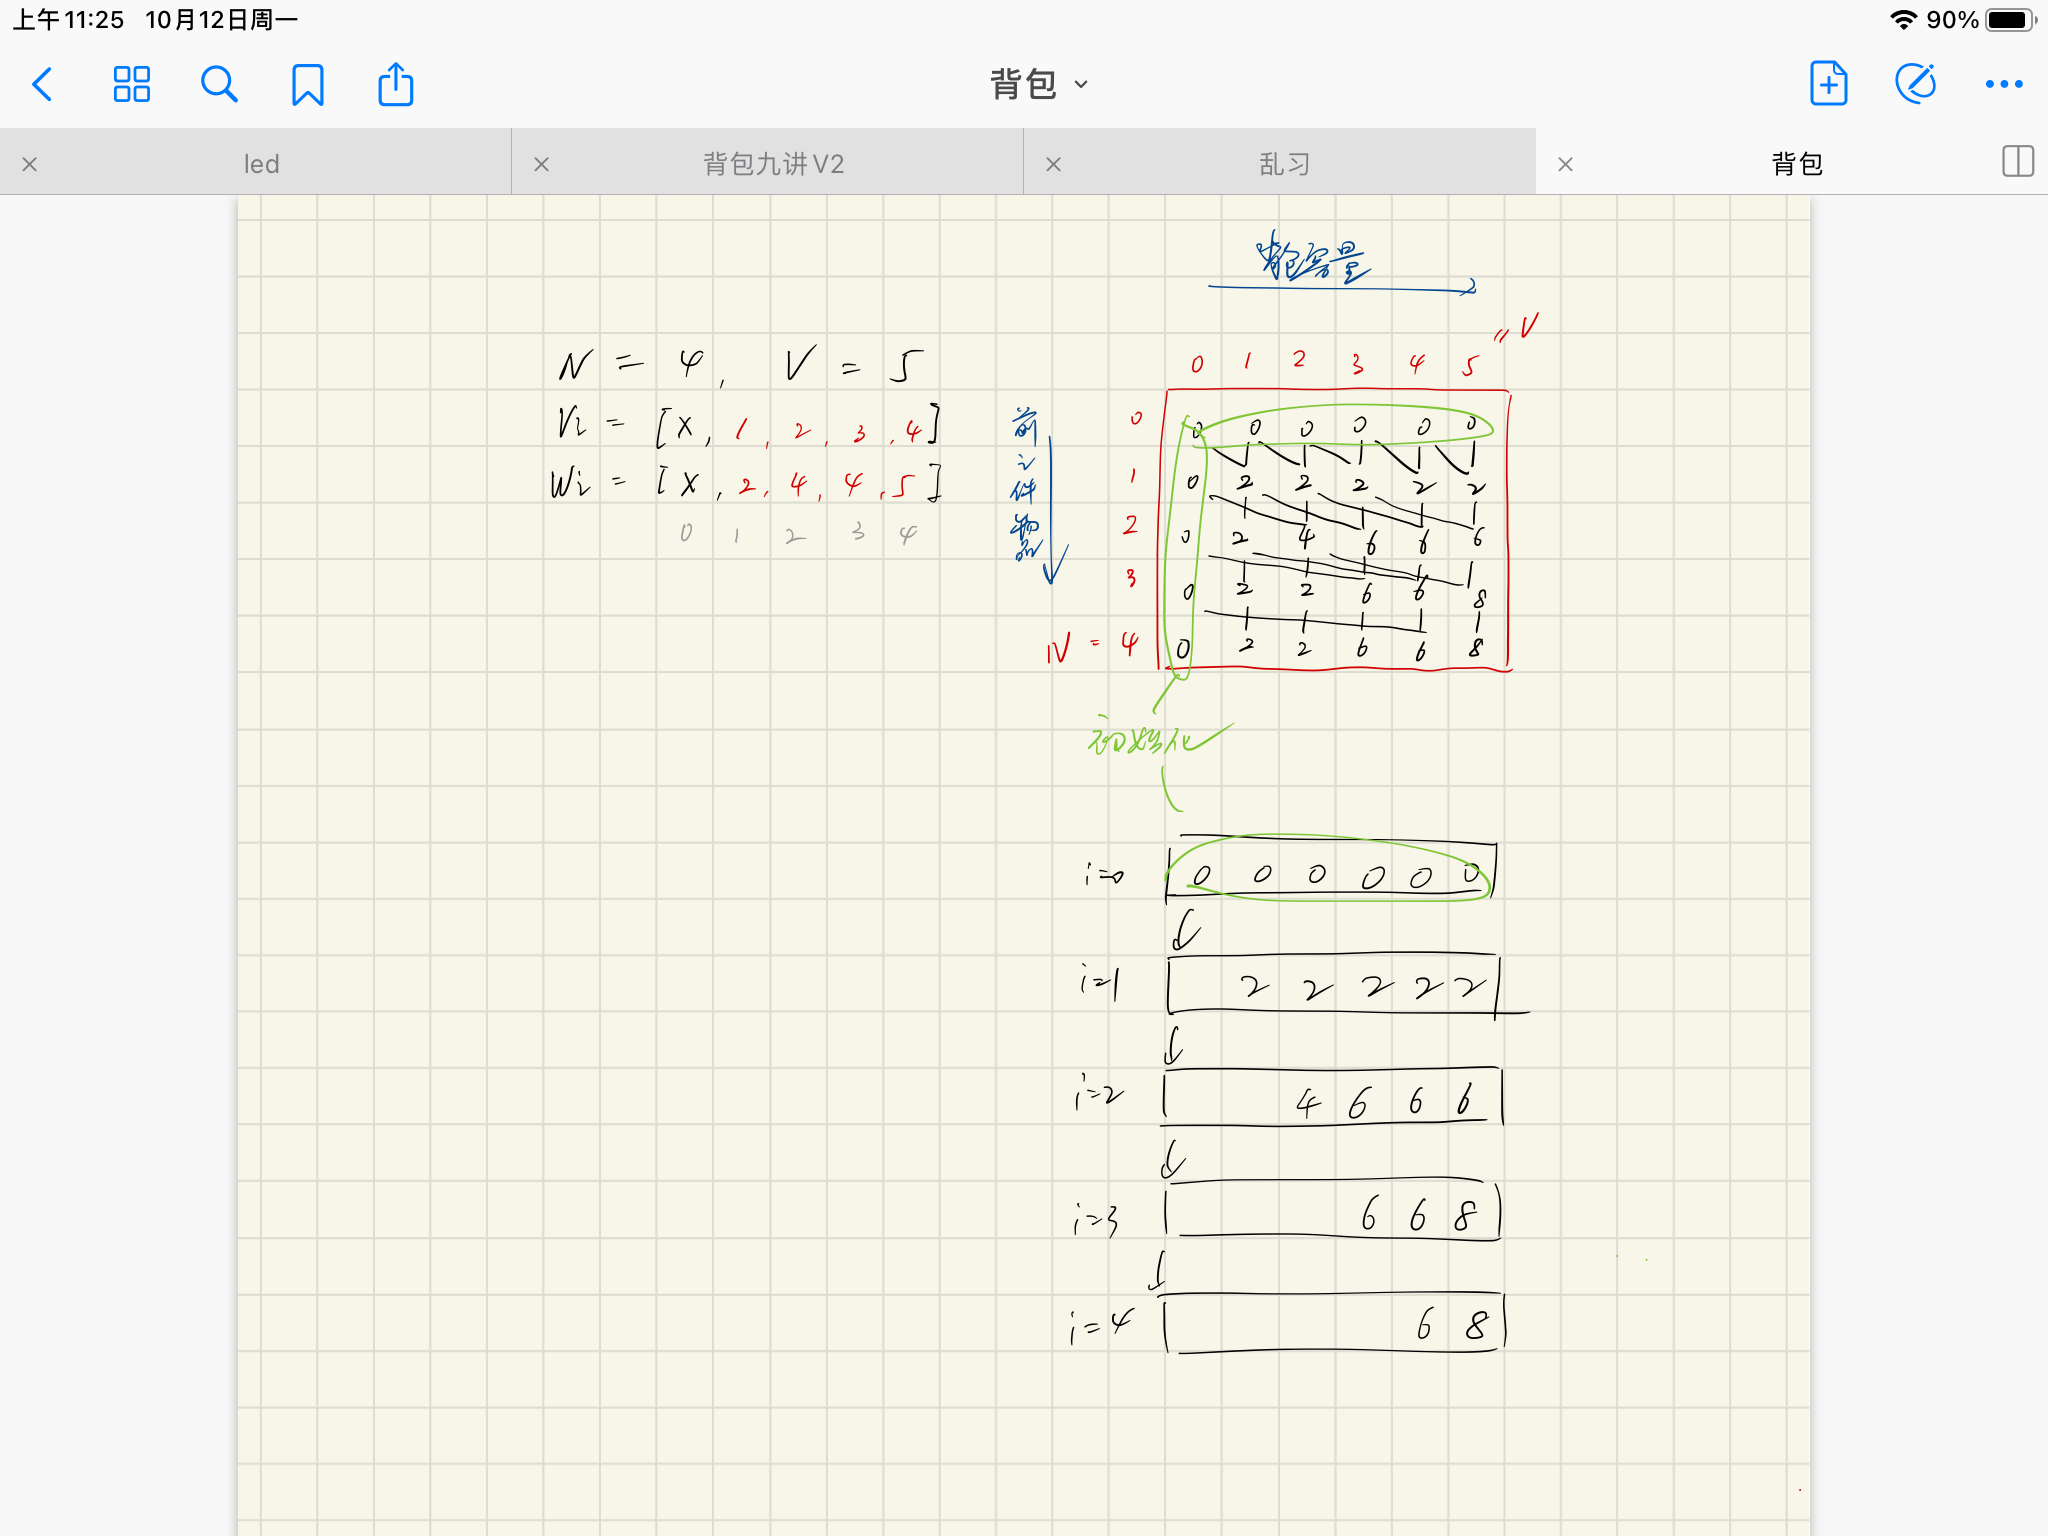 上午11:25 10月12日周一 90%
背包
led 背包九讲V2 乱习 背包
背包容量
N = 4, V = 5
= V
0 1 2 3 4 5
Vi = [X, 1, 2, 3, 4]
Wi = [X, 2, 4, 4, 5]
0 1 2 3 4
前i件物品
0 0 0 0 0 0 0
1 0 2 2 2 2 2
2 0 2 4 6 6 6
3 0 2 2 6 6 8
N = 4 0 2 2 6 6 8
初始化
i=0 0 0 0 0 0 0
i=1 2 2 2 2 2
i=2 4 6 6 6
i=3 6 6 8
i=4 6 8